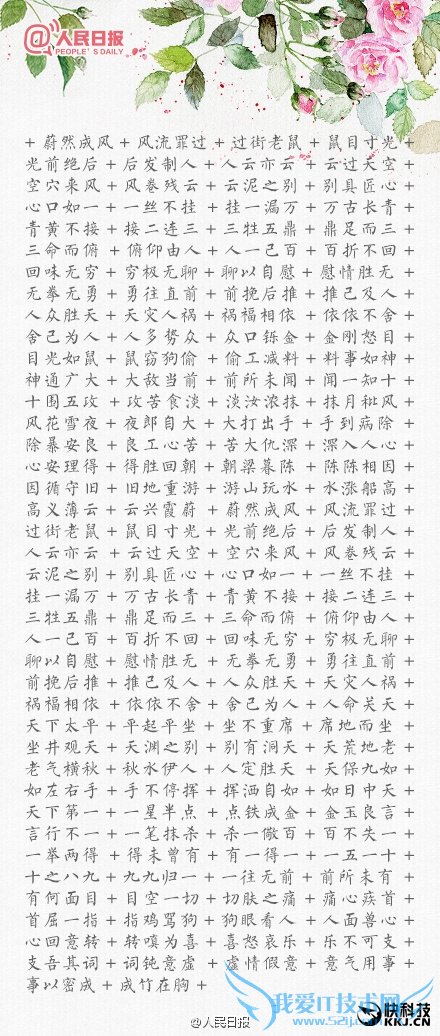 @人民日报
PEOPLE'S DAILY
+ 蔚然成风 + 风流罪过 + 过街老鼠 + 鼠目寸光 +
光前绝后 + 后发制人 + 人云亦云 + 云过天空 +
空穴来风 + 风卷残云 + 云泥之别 + 别具匠心 +
心口如一 + 一丝不挂 + 挂一漏万 + 万古长青 +
青黄不接 + 接二连三 + 三牲五鼎 + 鼎足而三 +
三命而俯 + 俯仰由人 + 人一己百 + 百折不回 +
回味无穷 + 穷极无聊 + 聊以自慰 + 慰情胜无 +
无拳无勇 + 勇往直前 + 前挽后推 + 推己及人 +
人众胜天 + 天灾人祸 + 祸福相依 + 依依不舍 +
舍己为人 + 人多势众 + 众口铄金 + 金刚怒目 +
目光如鼠 + 鼠窃狗偷 + 偷工减料 + 料事如神 +
神通广大 + 大敌当前 + 前所未闻 + 闻一知十 +
十围五攻 + 攻苦食淡 + 淡汝浓抹 + 抹月秕风 +
风花雪夜 + 夜郎自大 + 大打出手 + 手到病除 +
除暴安良 + 良工心苦 + 苦大仇深 + 深入人心 +
心安理得 + 得胜回朝 + 朝梁暮陈 + 陈陈相因 +
因循守旧 + 旧地重游 + 游山玩水 + 水涨船高 +
高义薄云 + 云兴霞蔚 + 蔚然成风 + 风流罪过 +
过街老鼠 + 鼠目寸光 + 光前绝后 + 后发制人 +
人云亦云 + 云过天空 + 空穴来风 + 风卷残云 +
云泥之别 + 别具匠心 + 心口如一 + 一丝不挂 +
挂一漏万 + 万古长青 + 青黄不接 + 接二连三 +
三牲五鼎 + 鼎足而三 + 三命而俯 + 俯仰由人 +
人一己百 + 百折不回 + 回味无穷 + 穷极无聊 +
聊以自慰 + 慰情胜无 + 无拳无勇 + 勇往直前 +
前挽后推 + 推己及人 + 人众胜天 + 天灾人祸 +
祸福相依 + 依依不舍 + 舍己为人 + 人命关天 +
天下太平 + 平起平坐 + 坐不重席 + 席地而坐 +
坐井观天 + 天渊之别 + 别有洞天 + 天荒地老 +
老气横秋 + 秋水伊人 + 人定胜天 + 天保九如 +
如左右手 + 手不停挥 + 挥洒自如 + 如日中天 +
天下第一 + 一星半点 + 点铁成金 + 金玉良言 +
言行不一 + 一笔抹杀 + 杀一儆百 + 百不失一 +
一举两得 + 得未曾有 + 有一得一 + 一五一十 +
十之八九 + 九九归一 + 一往无前 + 前所未有 +
有何面目 + 目空一切 + 切肤之痛 + 痛心疾首 +
首屈一指 + 指鸡骂狗 + 狗眼看人 + 人面兽心 +
心回意转 + 转嗔为喜 + 喜怒哀乐 + 乐不可支 +
支吾其词 + 词钝意虚 + 虚情假意 + 意气用事 +
事以密成 + 成竹在胸 +
我爱IT技术网
www.52ij.com
@人民日报
快科技
KKJ.CN